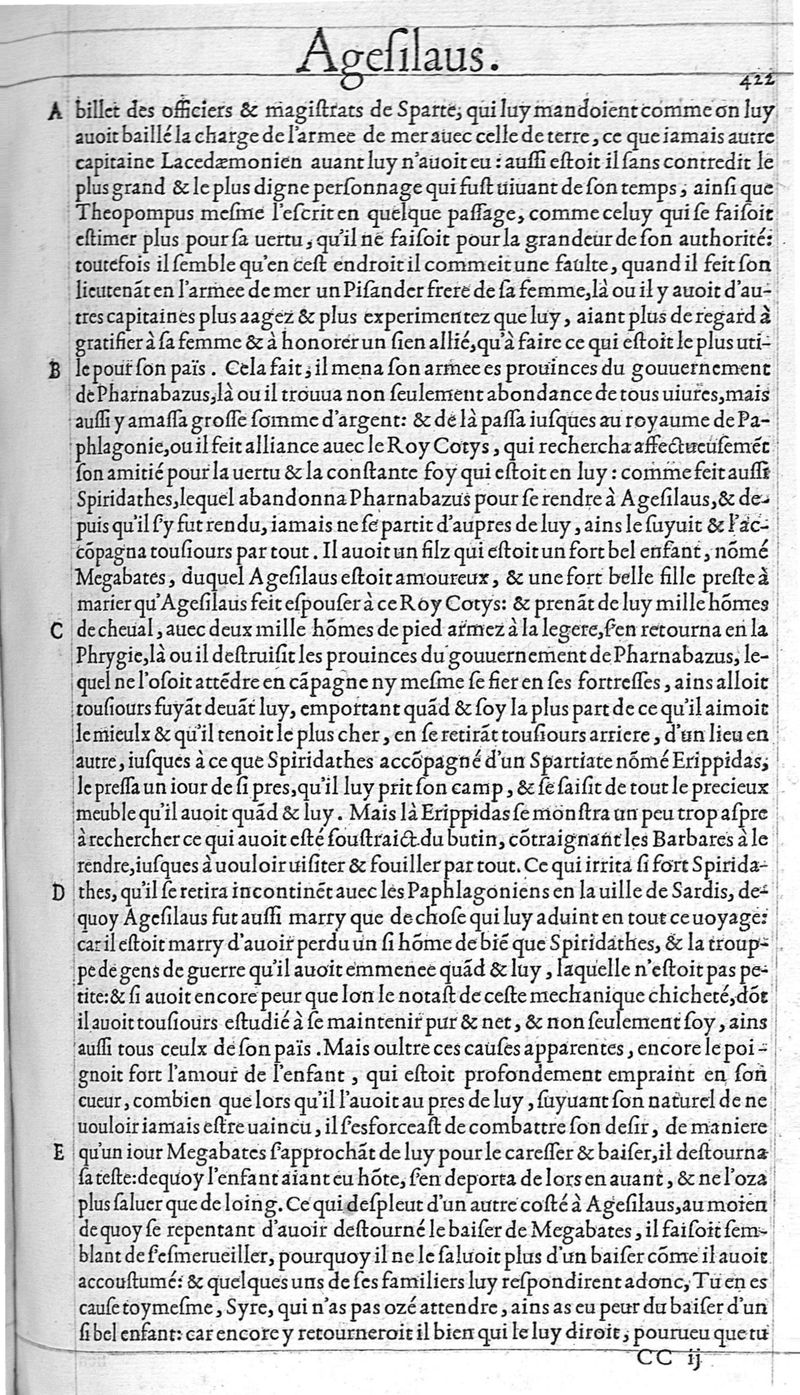 Ageſilaus.
422
A billet des officiers & magiſtrats de Sparte, qui luy mandoient comme on luy
auoit baillé la charge de l'armee de mer auec celle de terre, ce que iamais autre
capitaine Lacedæmonien auant luy n'auoit eu: auſſi eſtoit il ſans contredit le
plus grand & le plus digne perſonnage qui fuſt uiuant de ſon temps, ainſi que
Theopompus meſme l'eſcrit en quelque paſſage, comme celuy qui ſe faiſoit
eſtimer plus pour ſa uertu, qu'il ne faiſoit pour la grandeur de ſon authorité:
toutefois il ſemble qu'en ceſt endroit il commeit une faulte, quand il feit ſon
lieutenãt en l'armee de mer un Piſander frere de ſa femme, là ou il y auoit d'au-
tres capitaines plus aagez & plus experimentez que luy, aiant plus de regard à
gratifier à ſa femme & à honorer un ſien allié, qu'à faire ce qui eſtoit le plus uti-
B le pour ſon païs. Cela fait, il mena ſon armee es prouinces du gouuernement
de Pharnabazus, là ou il trouua non ſeulement abondance de tous uiures, mais
auſſi y amaſſa groſſe ſomme d'argent: & de là paſſa iuſques au royaume de Pa-
phlagonie, ou il feit alliance auec le Roy Cotys, qui rechercha affectueuſemẽt
ſon amitié pour la uertu & la conſtante foy qui eſtoit en luy: comme feit auſſi
Spiridathes, lequel abandonna Pharnabazus pour ſe rendre à Ageſilaus, & de-
puis qu'il ſ'y fut rendu, iamais ne ſe partit d'aupres de luy, ains le ſuyuit & l'ac-
cõpagna touſiours par tout. Il auoit un filz qui eſtoit un fort bel enfant, nõmé
Megabates, duquel Ageſilaus eſtoit amoureux, & une fort belle fille preſte à
marier qu'Ageſilaus feit eſpouſer à ce Roy Cotys: & prenãt de luy mille hõmes
C de cheual, auec deux mille hõmes de pied armez à la legere, ſ'en retourna en la
Phrygie, là ou il deſtruiſit les prouinces du gouuernement de Pharnabazus, le-
quel ne l'oſoit attẽdre en cãpagne ny meſme ſe fier en ſes fortreſſes, ains alloit
touſiours fuyãt deuãt luy, emportant quãd & ſoy la plus part de ce qu'il aimoit
le mieulx & qu'il tenoit le plus cher, en ſe retirãt touſiours arriere, d'un lieu en
autre, iuſques à ce que Spiridathes accõpagné d'un Spartiate nõmé Erippidas,
le preſſa un iour de ſi pres, qu'il luy prit ſon camp, & ſe ſaiſit de tout le precieux
meuble qu'il auoit quãd & luy. Mais là Erippidas ſe monſtra un peu trop aſpre
à rechercher ce qui auoit eſté ſouſtraict du butin, cõtraignant les Barbares à le
rendre, iuſques à uouloir uiſiter & fouiller par tout. Ce qui irrita ſi fort Spirida-
D thes, qu'il ſe retira incontinẽt auec les Paphlagoniens en la uille de Sardis, de-
quoy Ageſilaus fut auſſi marry que de choſe qui luy aduint en tout ce uoyage:
car il eſtoit marry d'auoir perdu un ſi hõme de biẽ que Spiridathes, & la troup-
pe de gens de guerre qu'il auoit emmenee quãd & luy, laquelle n'eſtoit pas pe-
tite: & ſi auoit encore peur que lon le notaſt de ceſte mechanique chicheté, dõt
il auoit touſiours eſtudié à ſe maintenir pur & net, & non ſeulement ſoy, ains
auſſi tous ceulx de ſon païs. Mais oultre ces cauſes apparentes, encore le poi-
gnoit fort l'amour de l'enfant, qui eſtoit profondement empraint en ſon
cueur, combien que lors qu'il l'auoit au pres de luy, ſuyuant ſon naturel de ne
uouloir iamais eſtre uaincu, il ſ'eſforceaſt de combattre ſon deſir, de maniere
E qu'un iour Megabates ſ'approchãt de luy pour le careſſer & baiſer, il deſtourna
ſa teſte: dequoy l'enfant aiant eu hõte, ſ'en deporta de lors en auant, & ne l'oza
plus ſaluer que de loing. Ce qui deſpleut d'un autre coſté à Ageſilaus, au moien
de quoy ſe repentant d'auoir deſtourné le baiſer de Megabates, il faiſoit ſem-
blant de ſ'eſmerueiller, pourquoy il ne le ſaluoit plus d'un baiſer cõme il auoit
accouſtumé: & quelques uns de ſes familiers luy reſpondirent adonc, Tu en es
cauſe toymeſme, Syre, qui n'as pas ozé attendre, ains as eu peur du baiſer d'un
ſi bel enfant: car encore y retourneroit il bien qui le luy diroit, pourueu que tu
CC ij